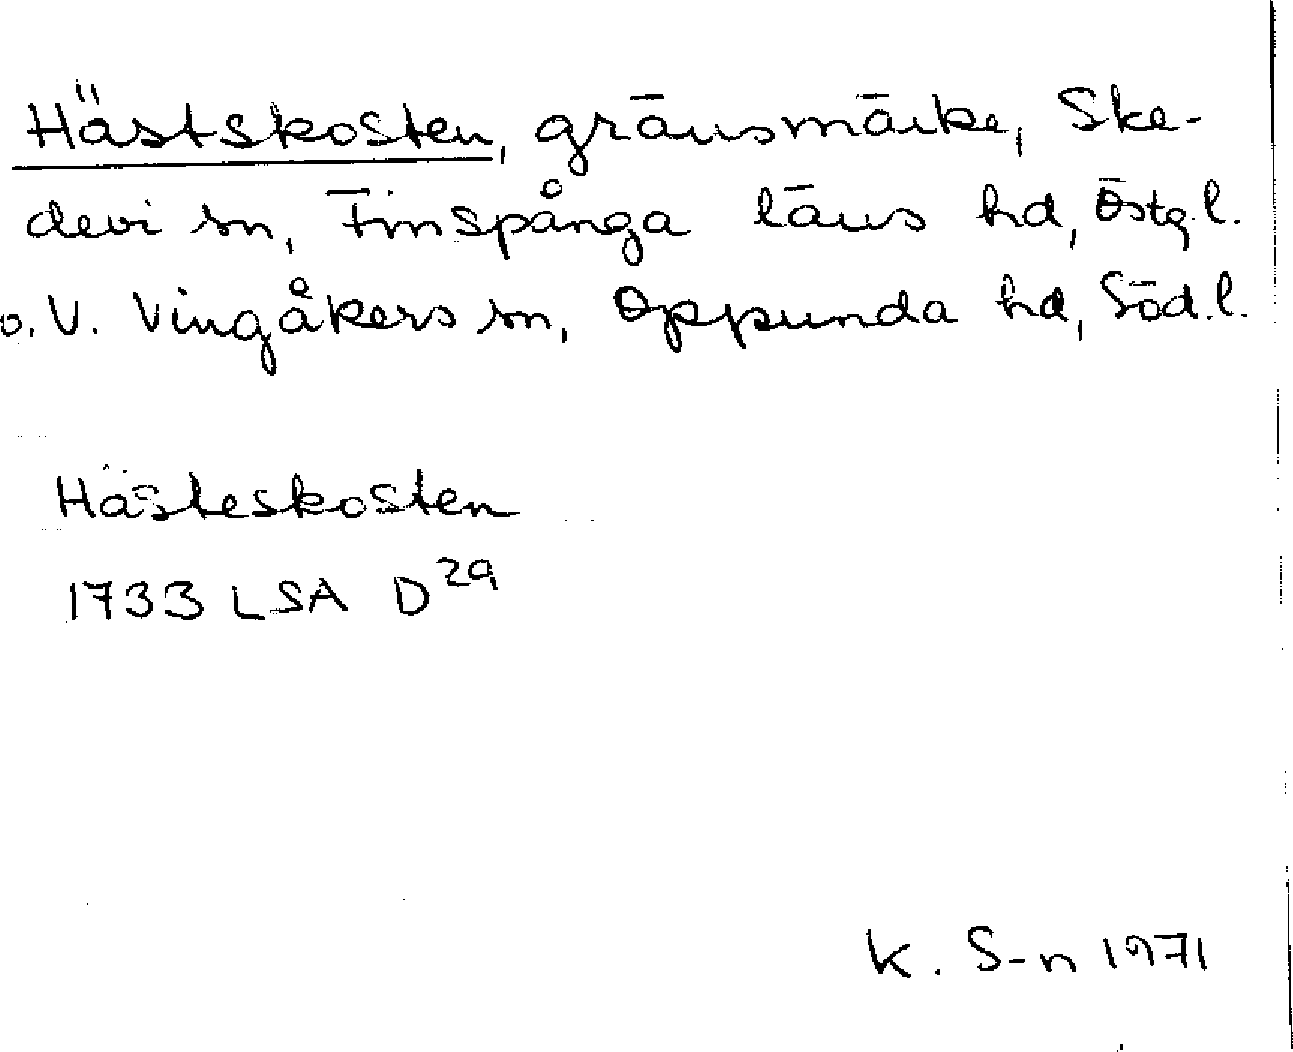 Hästskosten, gränsmärke, Ske-
devi sn, Finspånga läns hd, Östg.l.
o. V. Vingåkers sn, Oppunda hd, Söd.l.
Hästeskosten
1733 LSA D²⁹
K. S-n 1971